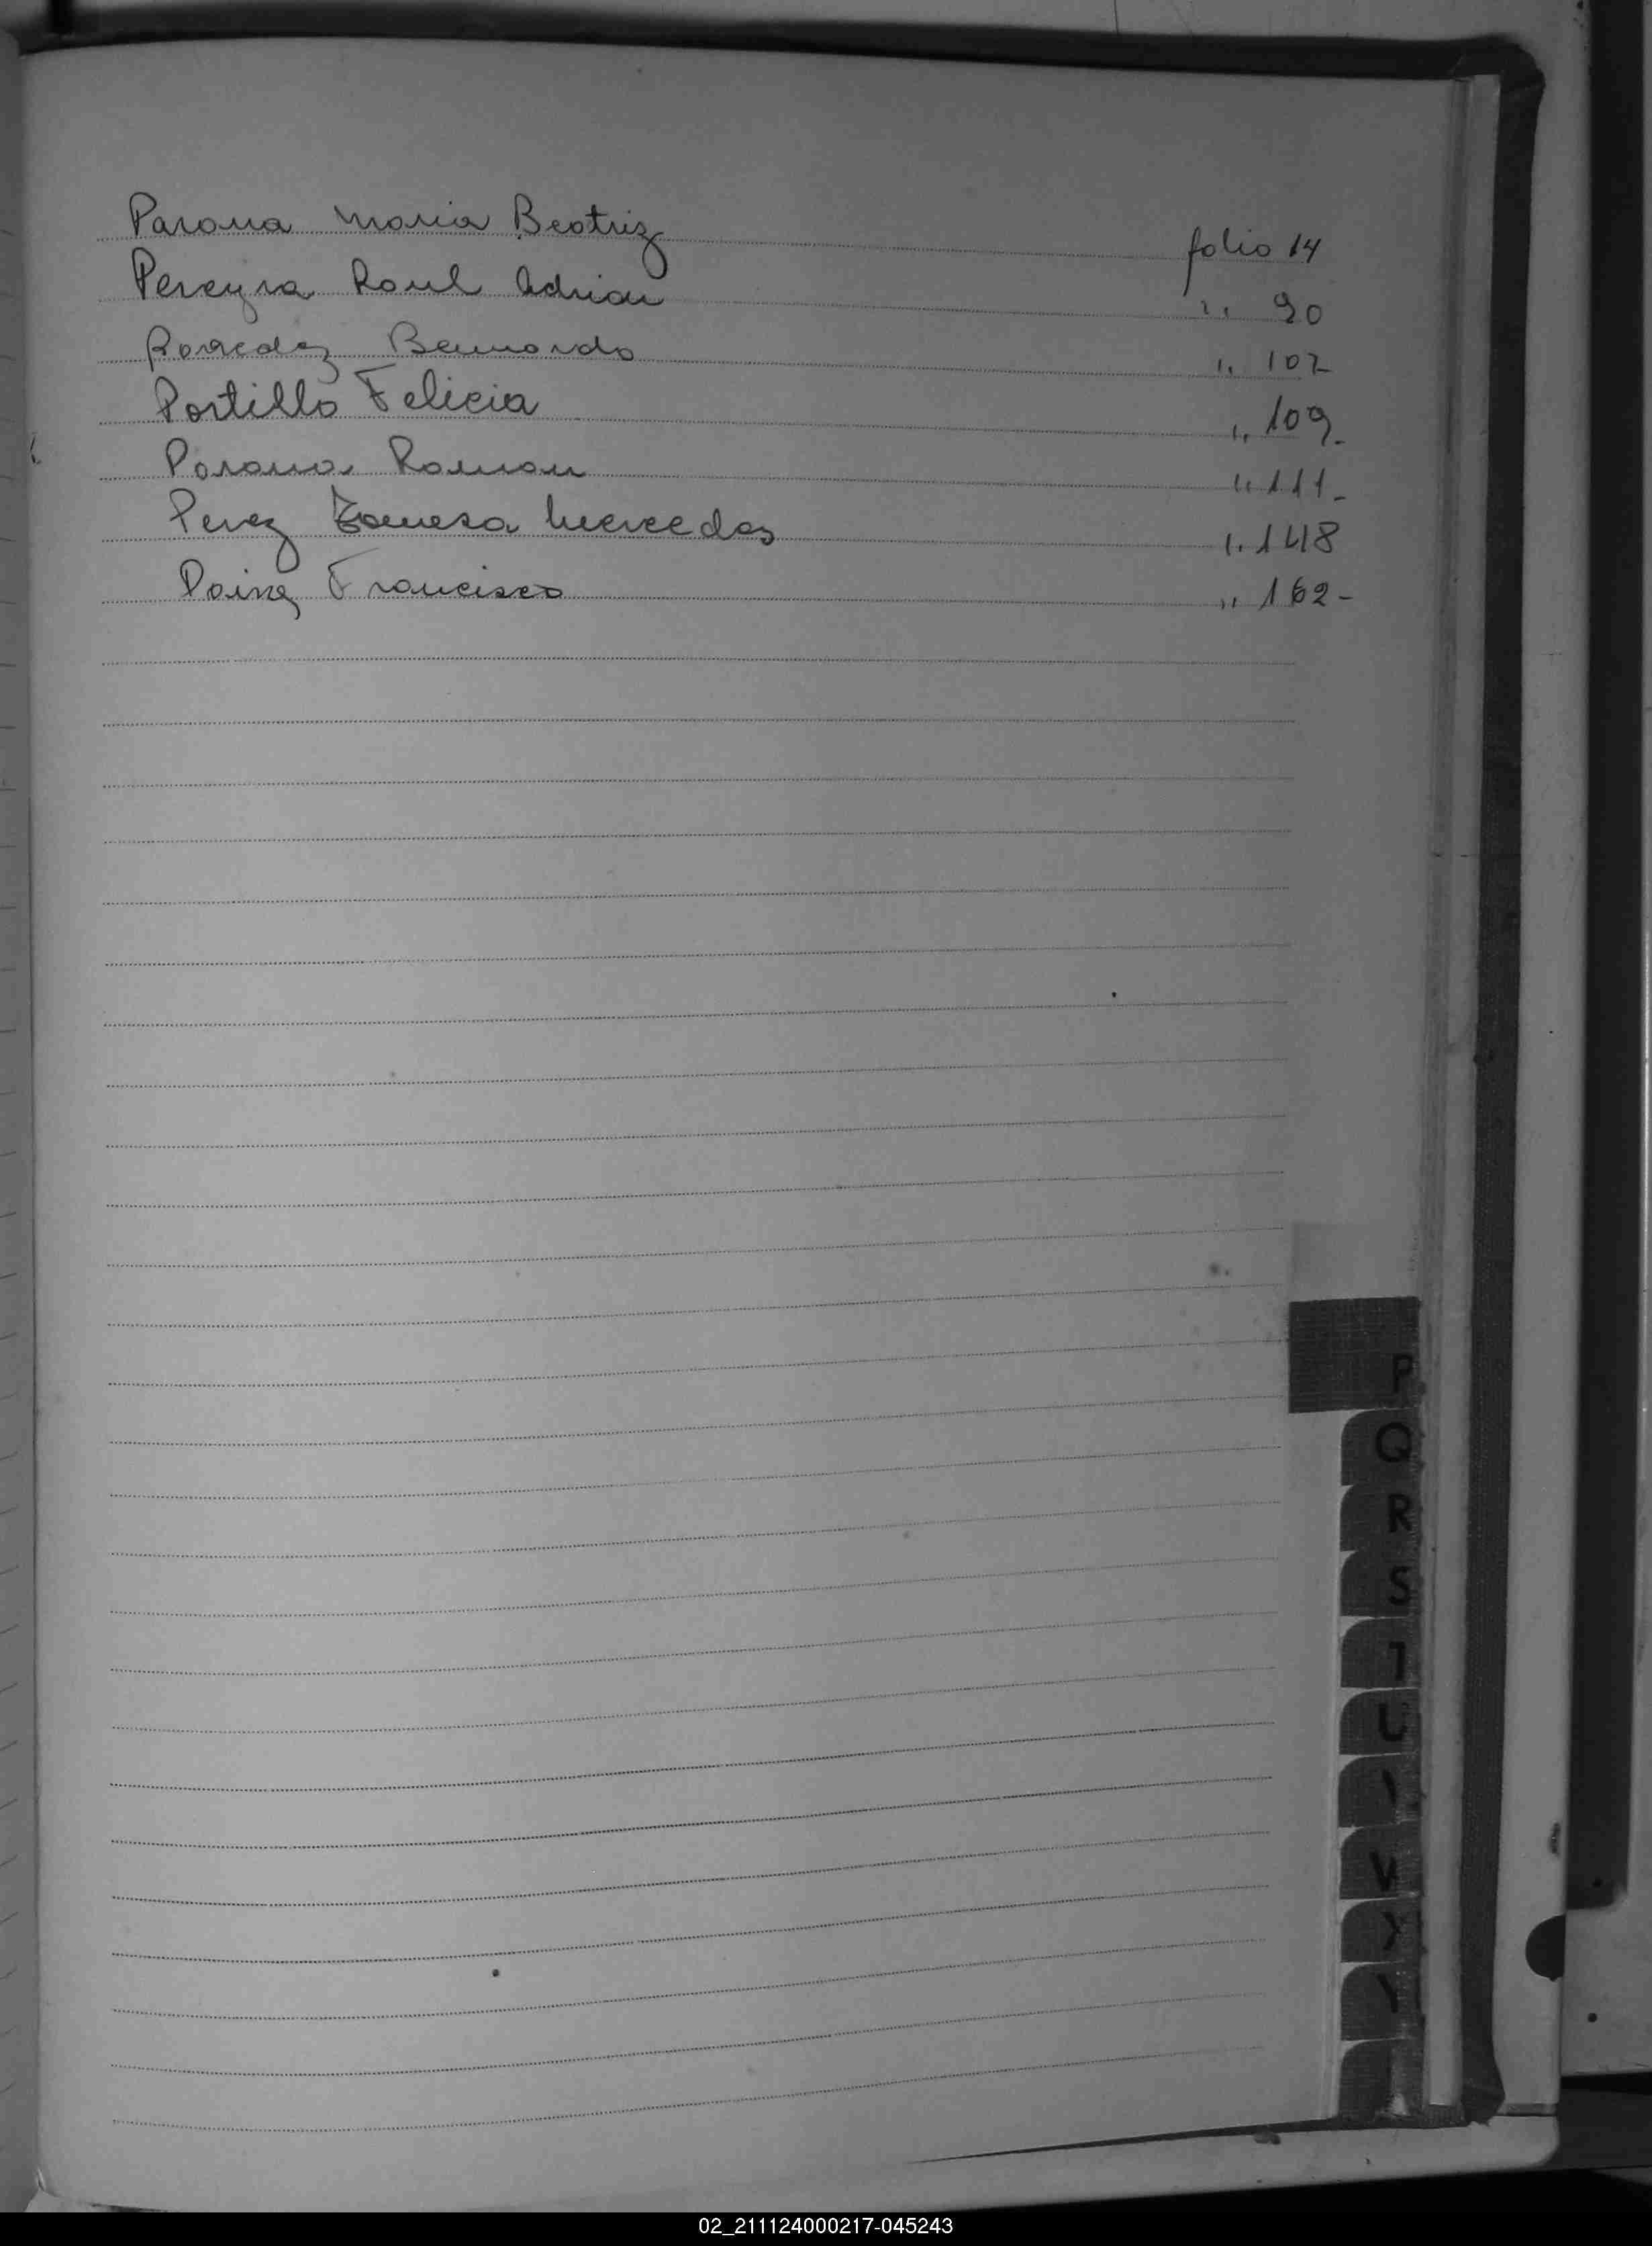 Parana Maria Beatriz folio 14
Pereyra Raul Adrian " 90
Paredez Bernardo " 107
Portillo Felicia " 109-
Parana Ramon " 111-
Perez Zamera Mercedes " 148
Paiz Francisco " 162-
P
Q
R
S
T
U
V
Y
02_211124000217-045243